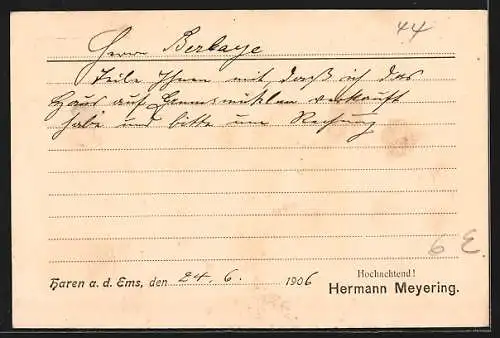 44
Herrn Berkaye
Teile Ihnen mit daß ich das
Haus auf verkauft
habe und bitte um Rechnung
6 E.
Haren a. d. Ems, den 24. 6. 1906
Hochachtend!
Hermann Meyering.